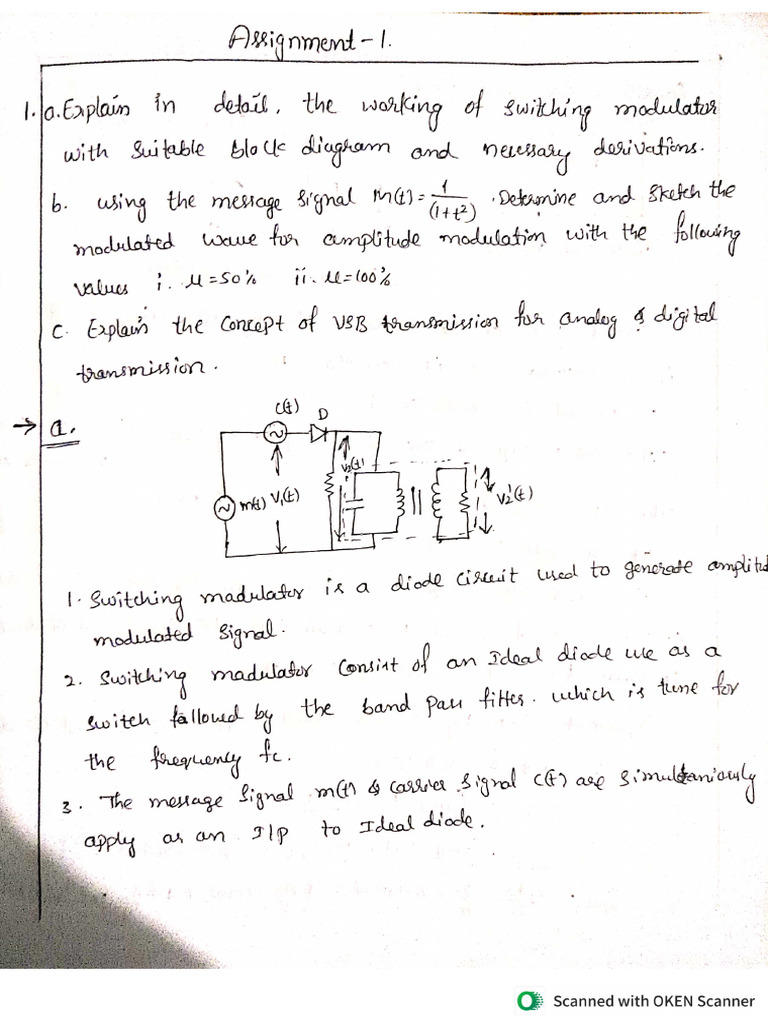 Assignment-1.
1. a. Explain in detail, the working of switching modulator
with suitable block diagram and necessary derivations.
b. using the message signal m(t) = 1/(1+t²). Determine and sketch the
modulated wave for amplitude modulation with the following
values i. μ=50% ii. μ=100%
c. Explain the concept of VSB transmission for analog & digital
transmission.
→ a.
c(t) D
V2(t)
m(t) V1(t) V2'(t)
1. Switching modulator is a diode circuit used to generate amplitud
modulated signal.
2. Switching modulator consist of an Ideal diode use as a
switch followed by the band pass filter. which is tune for
the frequency fc.
3. The message signal m(t) & carrier signal c(t) are simultaniously
apply as an I/p to Ideal diode.
Scanned with OKEN Scanner